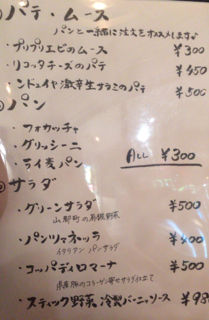 パテ・ムース
パンと一緒に注文をオススメします
・プリプリエビのムース ¥300
・リコッタチーズのパテ ¥450
・ンドュイヤ 激辛生サラミのパテ ¥500
パン
・フォカッチャ
・グリッシーニ ALL ¥300
・ライ麦パン
サラダ
・グリーンサラダ ¥500
山都町の有機野菜
・パンツァネッラ ¥400
イタリアン パンサラダ
・コッパディロマーナ ¥500
県産豚のコラーゲン寄せサラダ仕立て
・スティック野菜 冷製バーニャソース ¥98